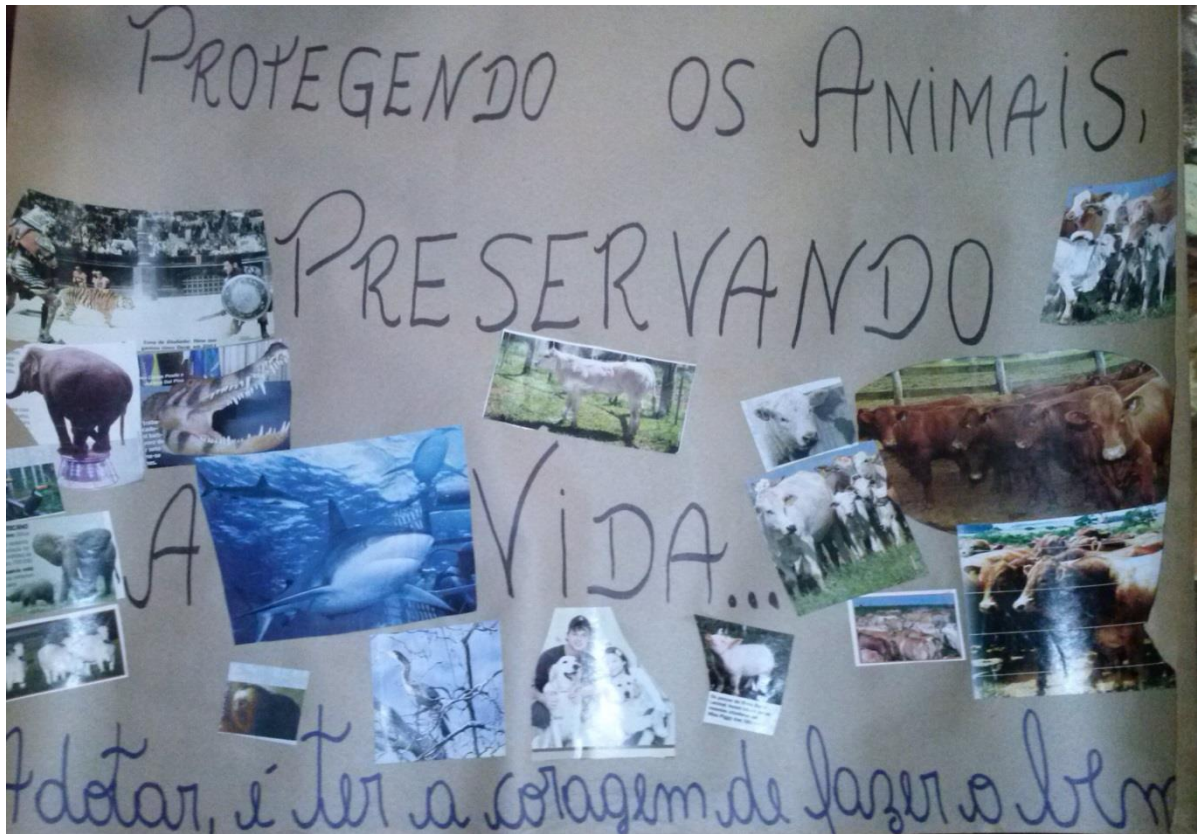 PROTEGENDO OS ANIMAIS,
PRESERVANDO
A VIDA...
Adotar, é ter a coragem de fazer o bem